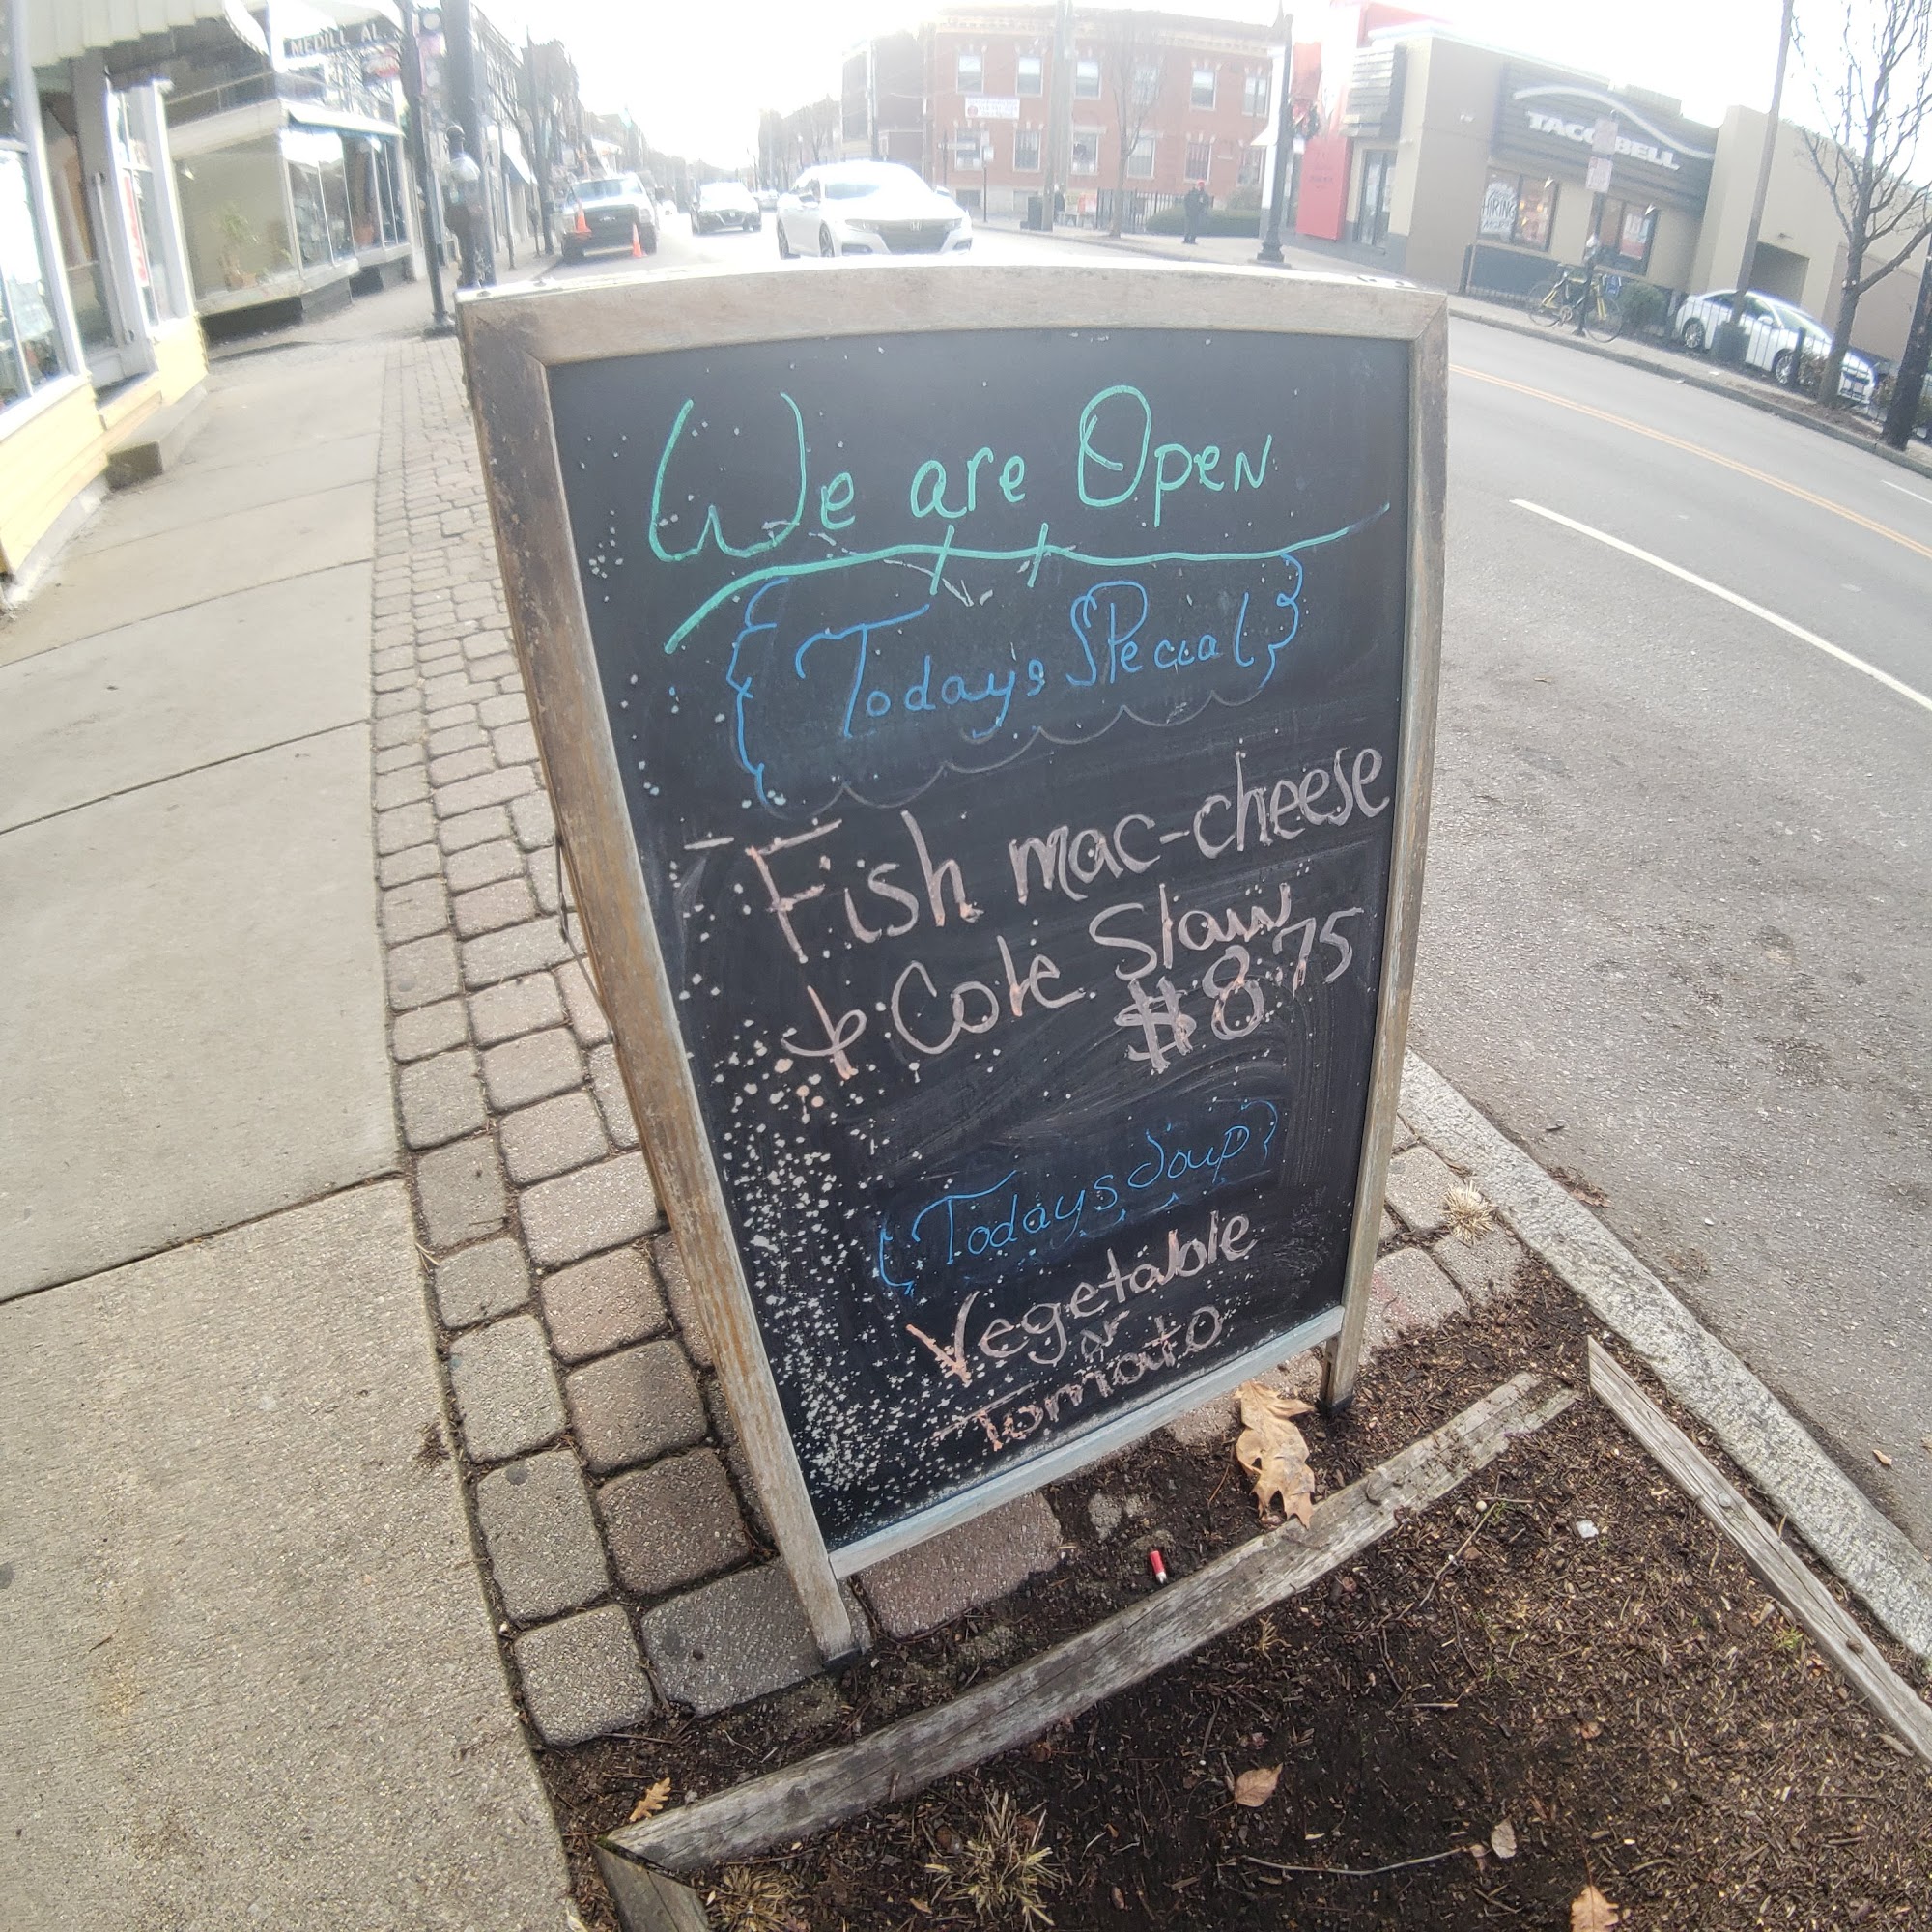 MEDILL AL
TACO BELL
HIRING
We are Open
Todays Special
Fish mac-cheese
& Cole Slaw
$8.75
Todays Soup
Vegetable
or
Tomato